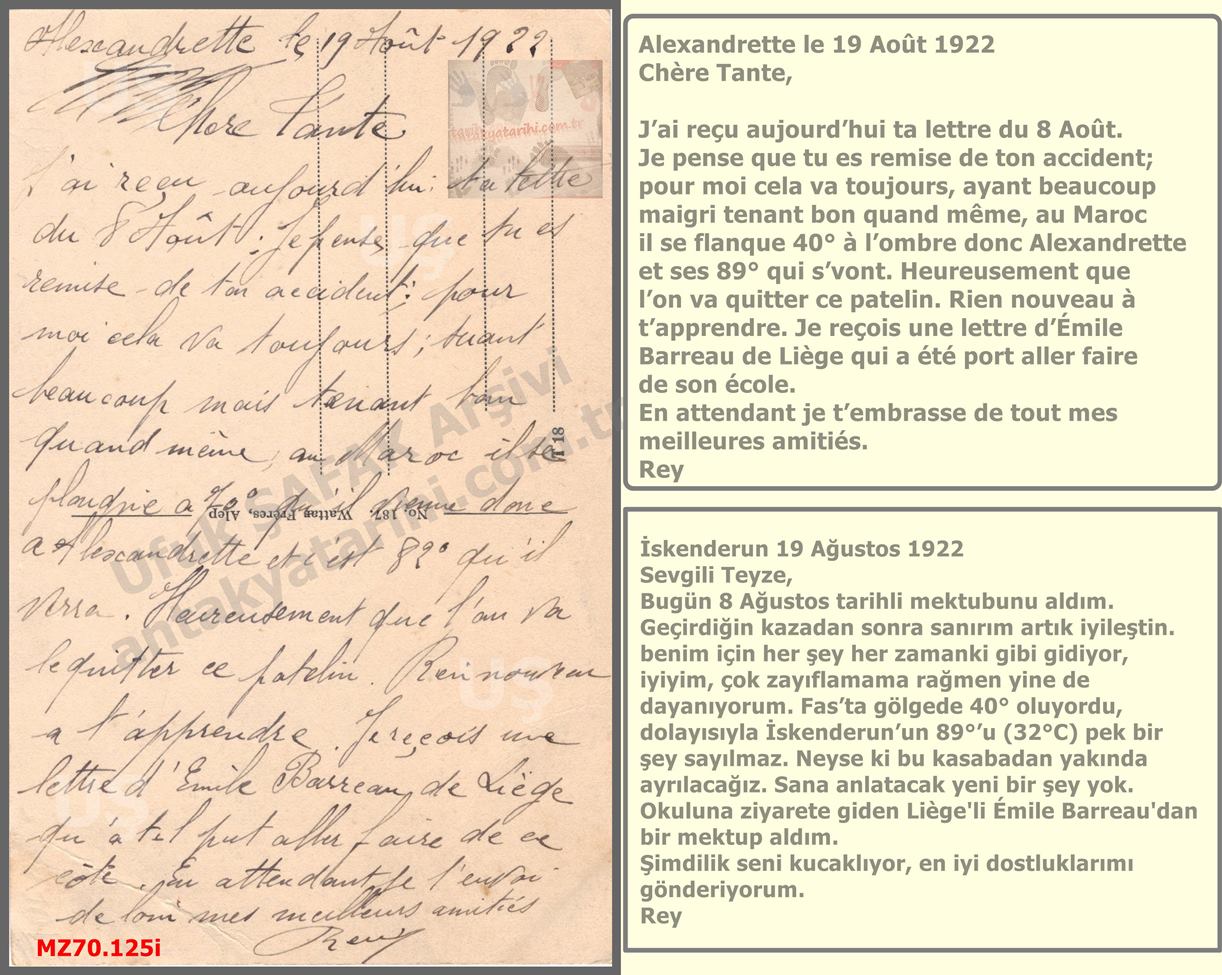 Alexandrette le 19 Août 1922
Chère Tante
J'ai reçu aujourd'hui ta lettre
du 8 Août : Je pense que tu es
remise de ton accident ; pour
moi cela va toujours ; suant
beaucoup mais tenant bon
quand même, au Maroc il se
plaignie a 40° qu'il vienne donc
a Alexandrette et c'est 82° qu'il
verra. Heureusement que l'on va
le quitter ce patelin. Rien nouveau
a t'apprendre. Je reçois une
lettre d'Emile Barreau de Liège
qu'a t-il put aller faire de ce
côté. En attendant je t'envoi
de loin mes meilleurs amitiés
Rey
No. 187. Wattar Frères, Alep
18
tarihi.com.tr
antakyatarihi.com.tr
Ufuk ŞAFAK Arşivi
antakyatarihi.com.tr
UŞ
UŞ
UŞ
MZ70.125i
Alexandrette le 19 Août 1922
Chère Tante,
J’ai reçu aujourd’hui ta lettre du 8 Août.
Je pense que tu es remise de ton accident;
pour moi cela va toujours, ayant beaucoup
maigri tenant bon quand même, au Maroc
il se flanque 40° à l’ombre donc Alexandrette
et ses 89° qui s’vont. Heureusement que
l’on va quitter ce patelin. Rien nouveau à
t’apprendre. Je reçois une lettre d’Émile
Barreau de Liège qui a été port aller faire
de son école.
En attendant je t’embrasse de tout mes
meilleures amitiés.
Rey
İskenderun 19 Ağustos 1922
Sevgili Teyze,
Bugün 8 Ağustos tarihli mektubunu aldım.
Geçirdiğin kazadan sonra sanırım artık iyileştin.
benim için her şey her zamanki gibi gidiyor,
iyiyim, çok zayıflamama rağmen yine de
dayanıyorum. Fas’ta gölgede 40° oluyordu,
dolayısıyla İskenderun’un 89°’u (32°C) pek bir
şey sayılmaz. Neyse ki bu kasabadan yakında
ayrılacağız. Sana anlatacak yeni bir şey yok.
Okuluna ziyarete giden Liège'li Émile Barreau'dan
bir mektup aldım.
Şimdilik seni kucaklıyor, en iyi dostluklarımı
gönderiyorum.
Rey